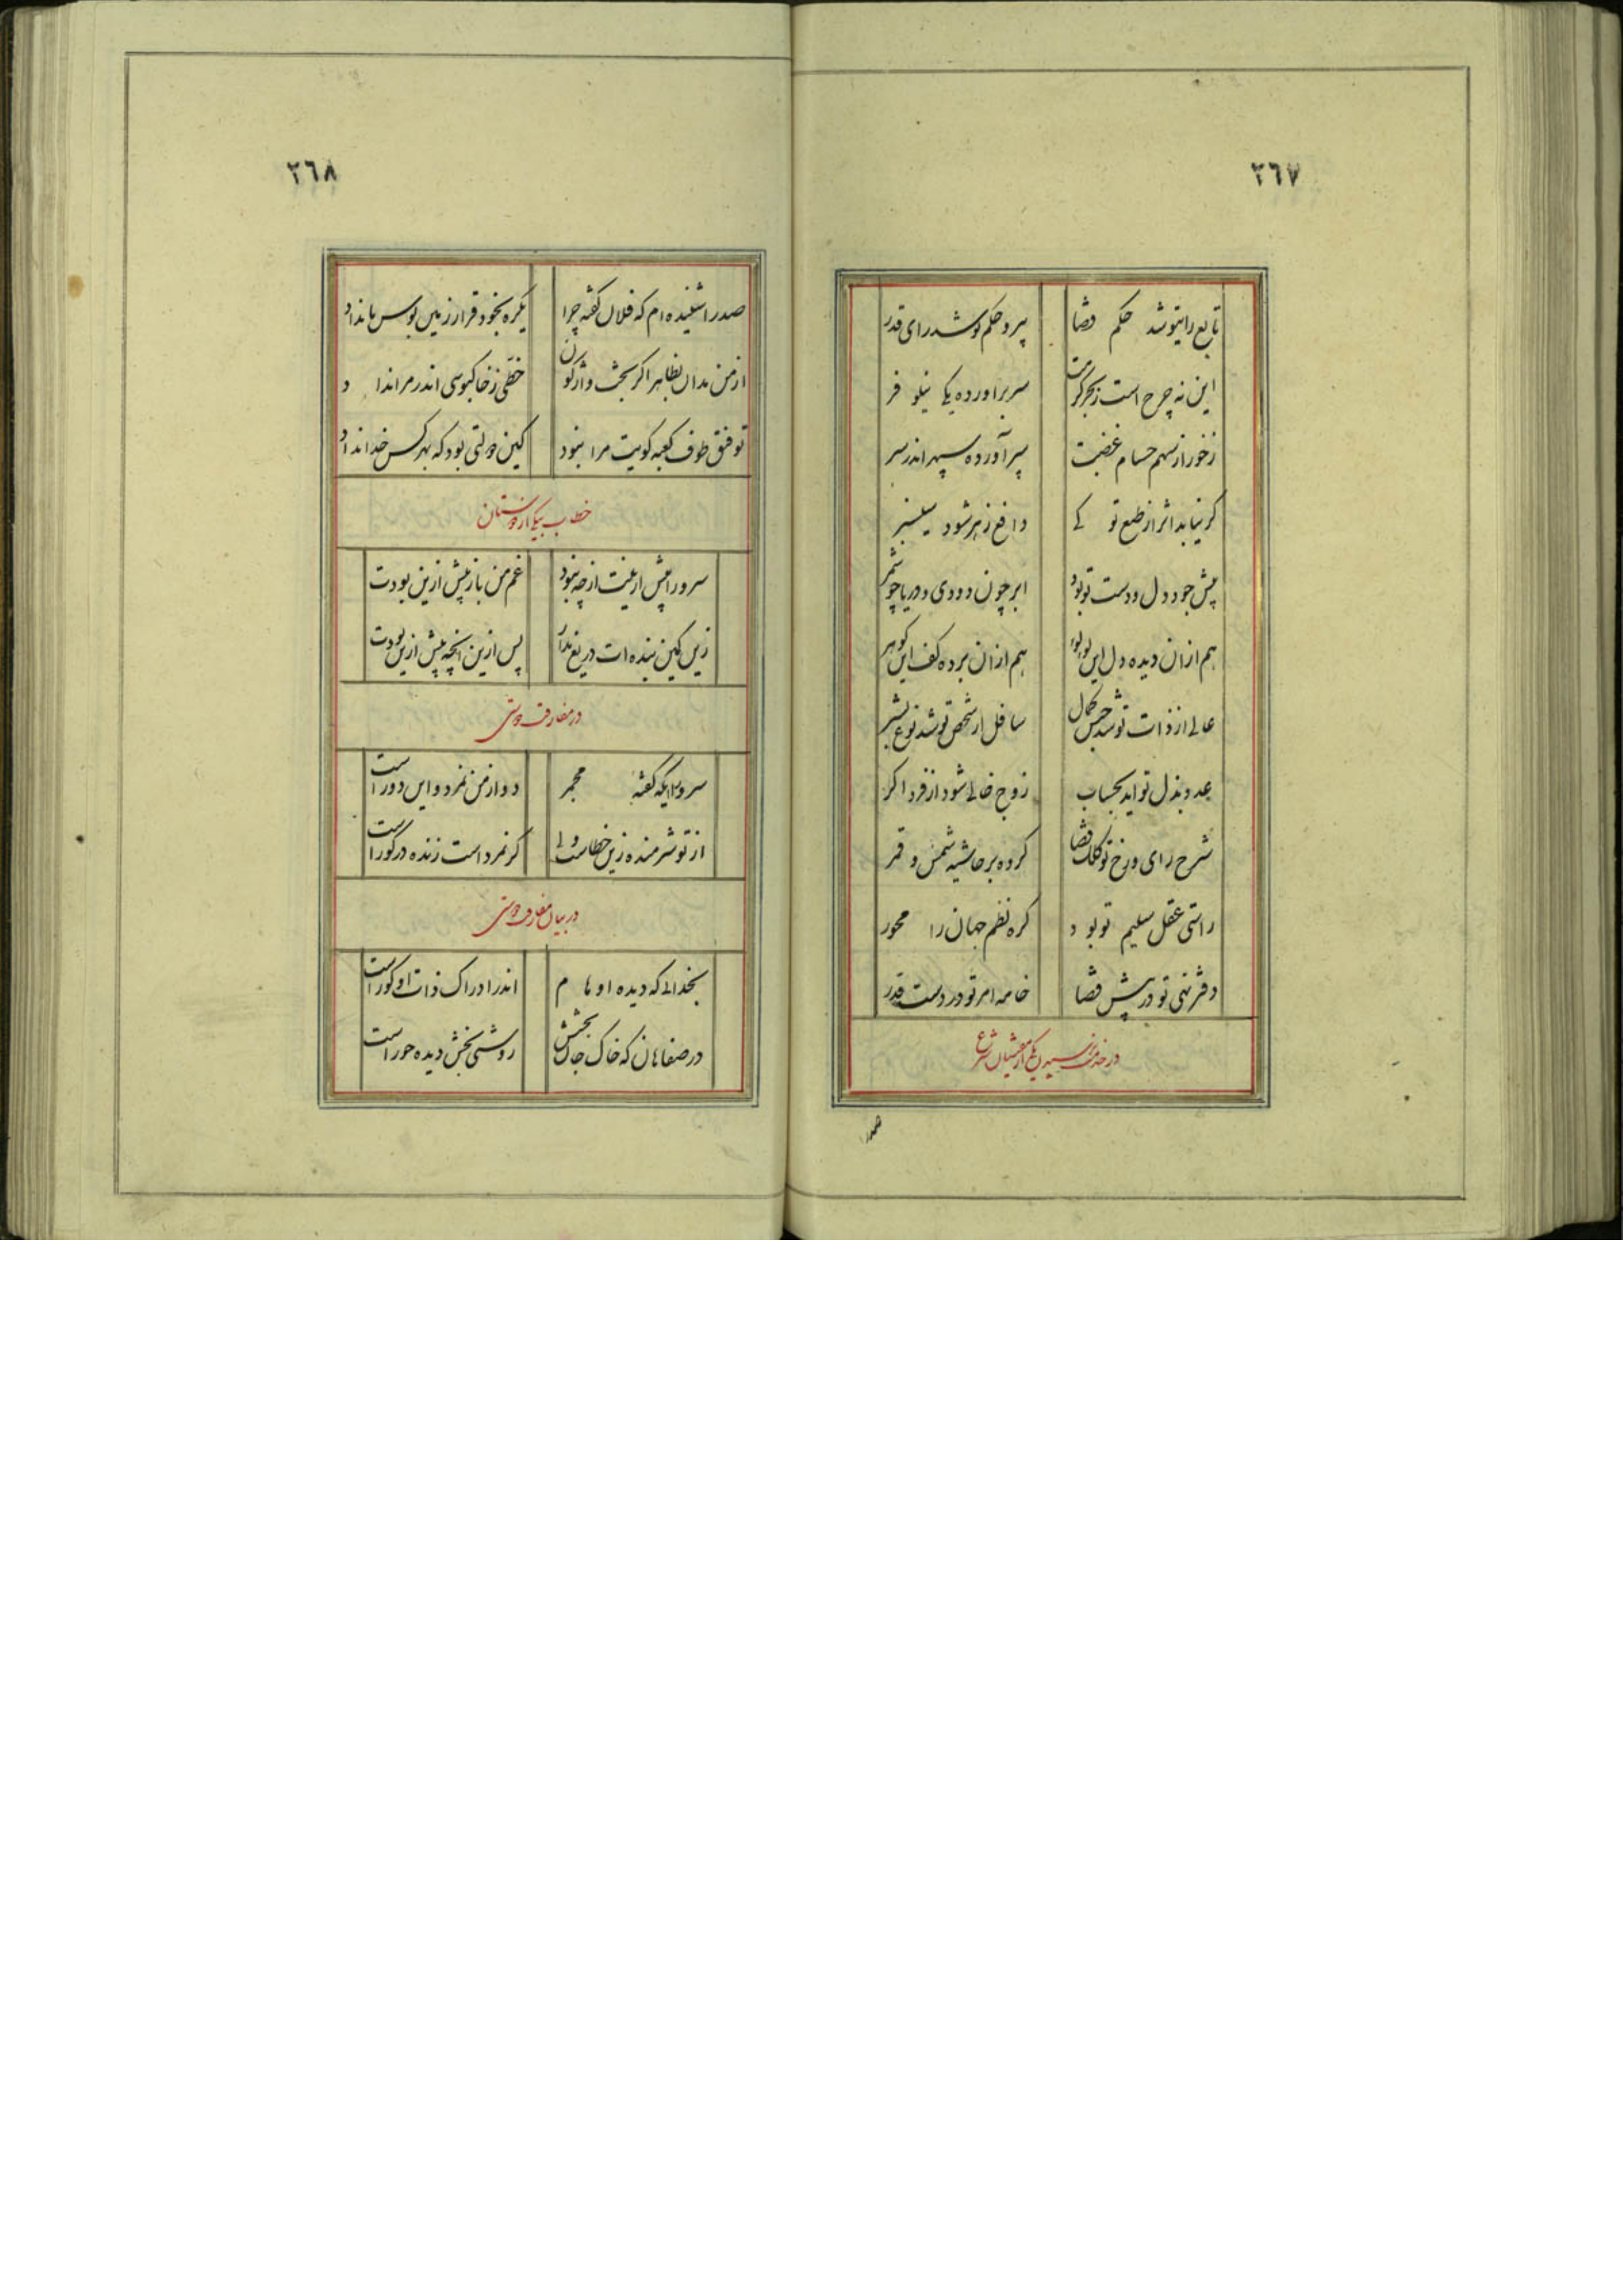 ٢٦٧
تابع رایتو شد حکم قضا
پیرو حکم تو شد رای قدر
این نه چرخ است ز بحر کرمت
سر برآورده یکی نیلوفر
ز خور از سهم حسام غضبت
سپر آورده سپهر اندر سر
گر نیابد اثر از طبع تو کی
دافع زهر شود سیسنبر
پیش جود دل و دست تو بود
ابر چون دودی و دریا چو شمر
هم از آن دیده دل این لولو
هم از آن برده کف این گوهر
عالی از ذات تو شد جنس کمال
سافل از شخص تو شد نوع بشر
عدد بذل تو آید بحساب
زوج خالی شود از فرد اگر
شرح رای و رخ تو کلک قضا
کرده بر حاشیه شمس و قمر
راستی عقل سلیم تو بود
کره نظم جهان را محور
دفتر نهی تو در پیش قضا
خامه امر تو در دست قدر
در خدمت نرسیدن یکی از منشیان شرع
صدرا
٢٦٨
صدرا شنیده‌ام که فلان گفته چرا
یکره بخود قرار زمین بوس ما نداد
از من مدان بظاهر اگر بخت واژگون
حظی ز خاکبوسی اندر مرا نداد
توفیق طوف کعبه کویت مرا نبود
کین دولتی بود که بهر کس خدا نداد
خطاب بیکی از دوستان
سرورا پیش ازینت ار چه نبود
غم من باز بیش ازین بودت
زین کمین بنده‌ات دریغ مدار
پس ازین آنچه پیش ازین بودت
در مفارقت دوستی
سرورا ایکه گفته مجمر
دور از من نمرد و این دور است
از تو شرمنده زین خطاست ولی
گر نمرد است زنده در گور است
در بیان مفارقت دوستی
بخدائی که دیده اوهام
اندر ادراک ذات او کور است
در صفاهان که خاک جان بخشش
روشنی بخش دیده حور است